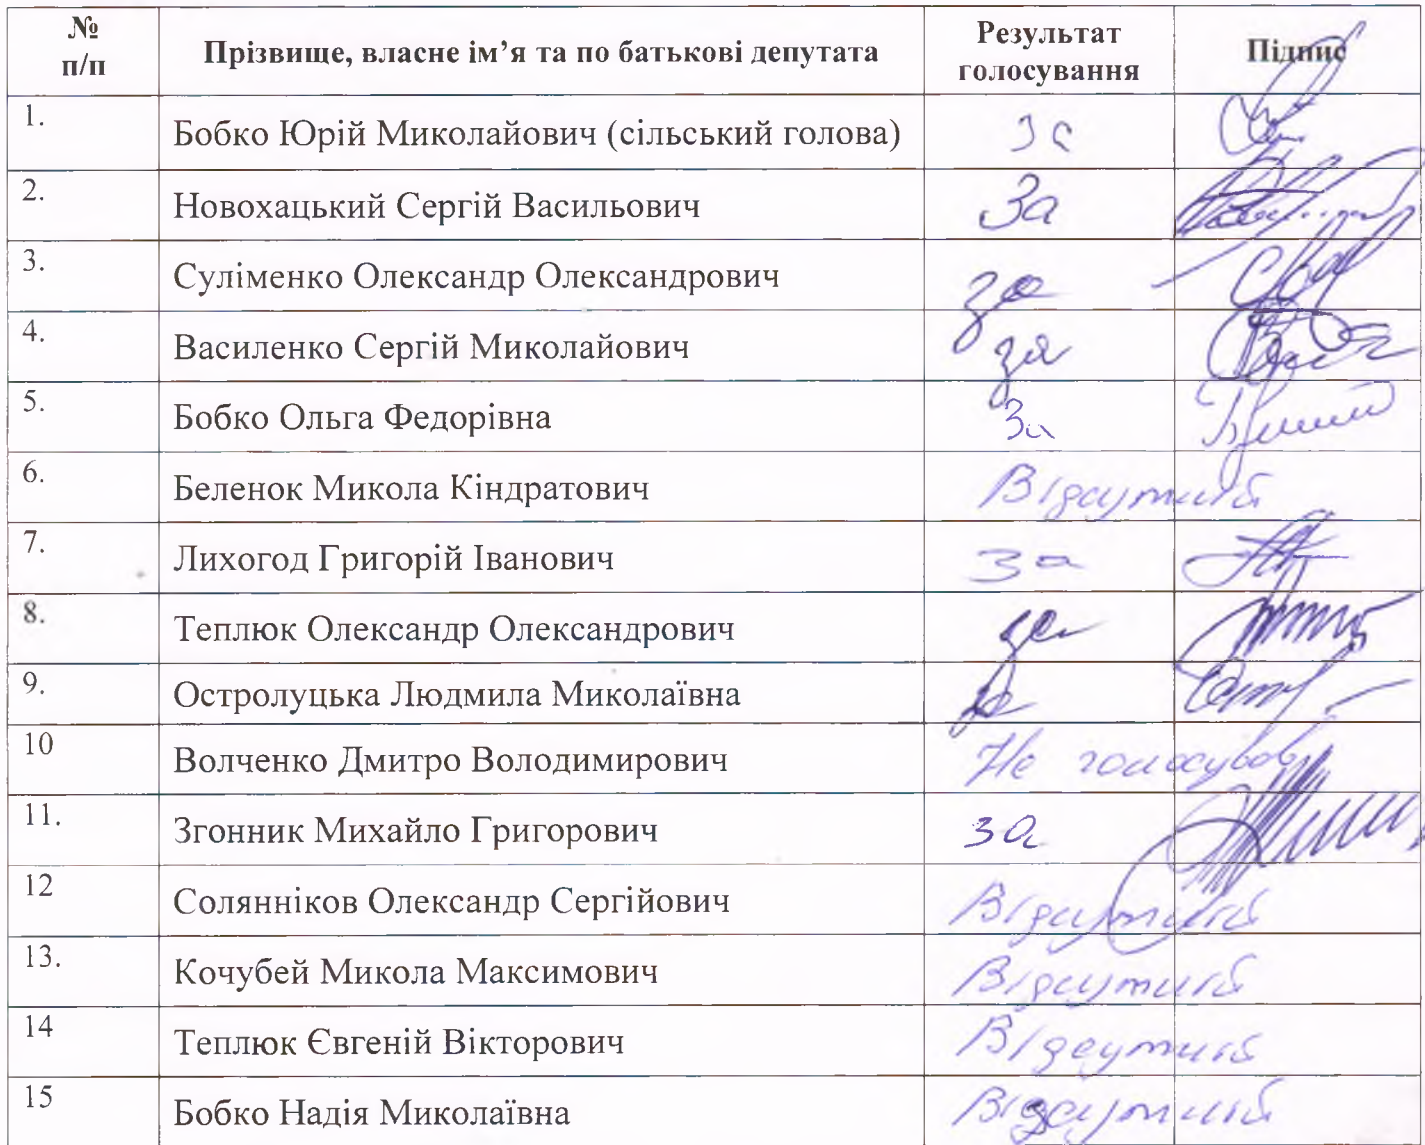 № п/п Прізвище, власне ім’я та по батькові депутата Результат голосування Підпис
1. Бобко Юрій Миколайович (сільський голова) За
2. Новохацький Сергій Васильович За
3. Суліменко Олександр Олександрович за
4. Василенко Сергій Миколайович за
5. Бобко Ольга Федорівна За
6. Беленок Микола Кіндратович Відсутній
7. Лихогод Григорій Іванович За
8. Теплюк Олександр Олександрович за
9. Остролуцька Людмила Миколаївна за
10 Волченко Дмитро Володимирович Не голосував
11. Згонник Михайло Григорович за
12 Солянніков Олександр Сергійович Відсутній
13. Кочубей Микола Максимович Відсутній
14 Теплюк Євгеній Вікторович Відсутній
15 Бобко Надія Миколаївна Відсутній